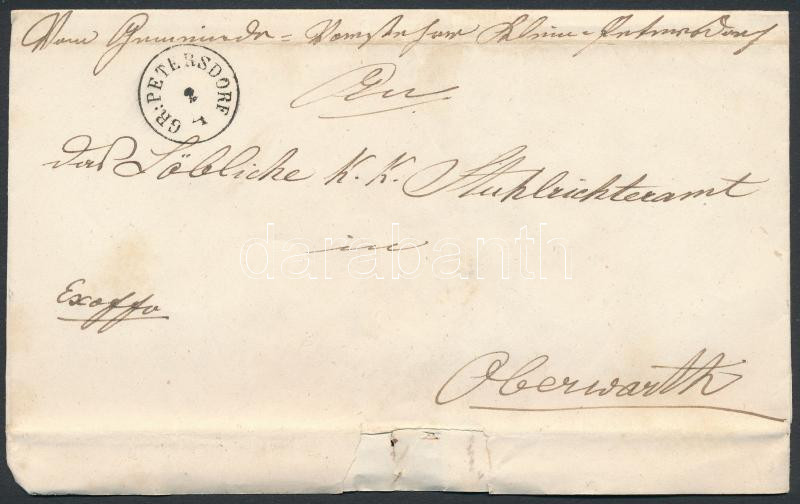 Vom Gemeinde = Vorsteher Klein = Petersdorf
GR: PETERSDORF
2
1
An
das Löbliche K. K. Stuhlrichteramt
in
darabanth
Exoffo
Oberwarth